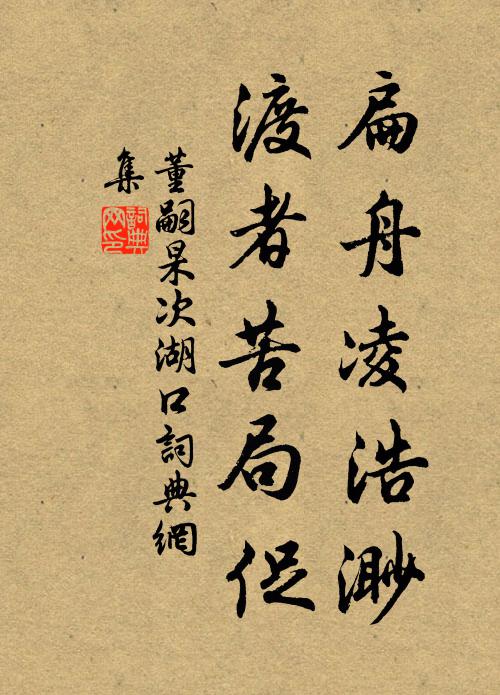 扁舟凌浩渺
渡者苦局促
董嗣杲次湖口詞典網
集
詞典网印